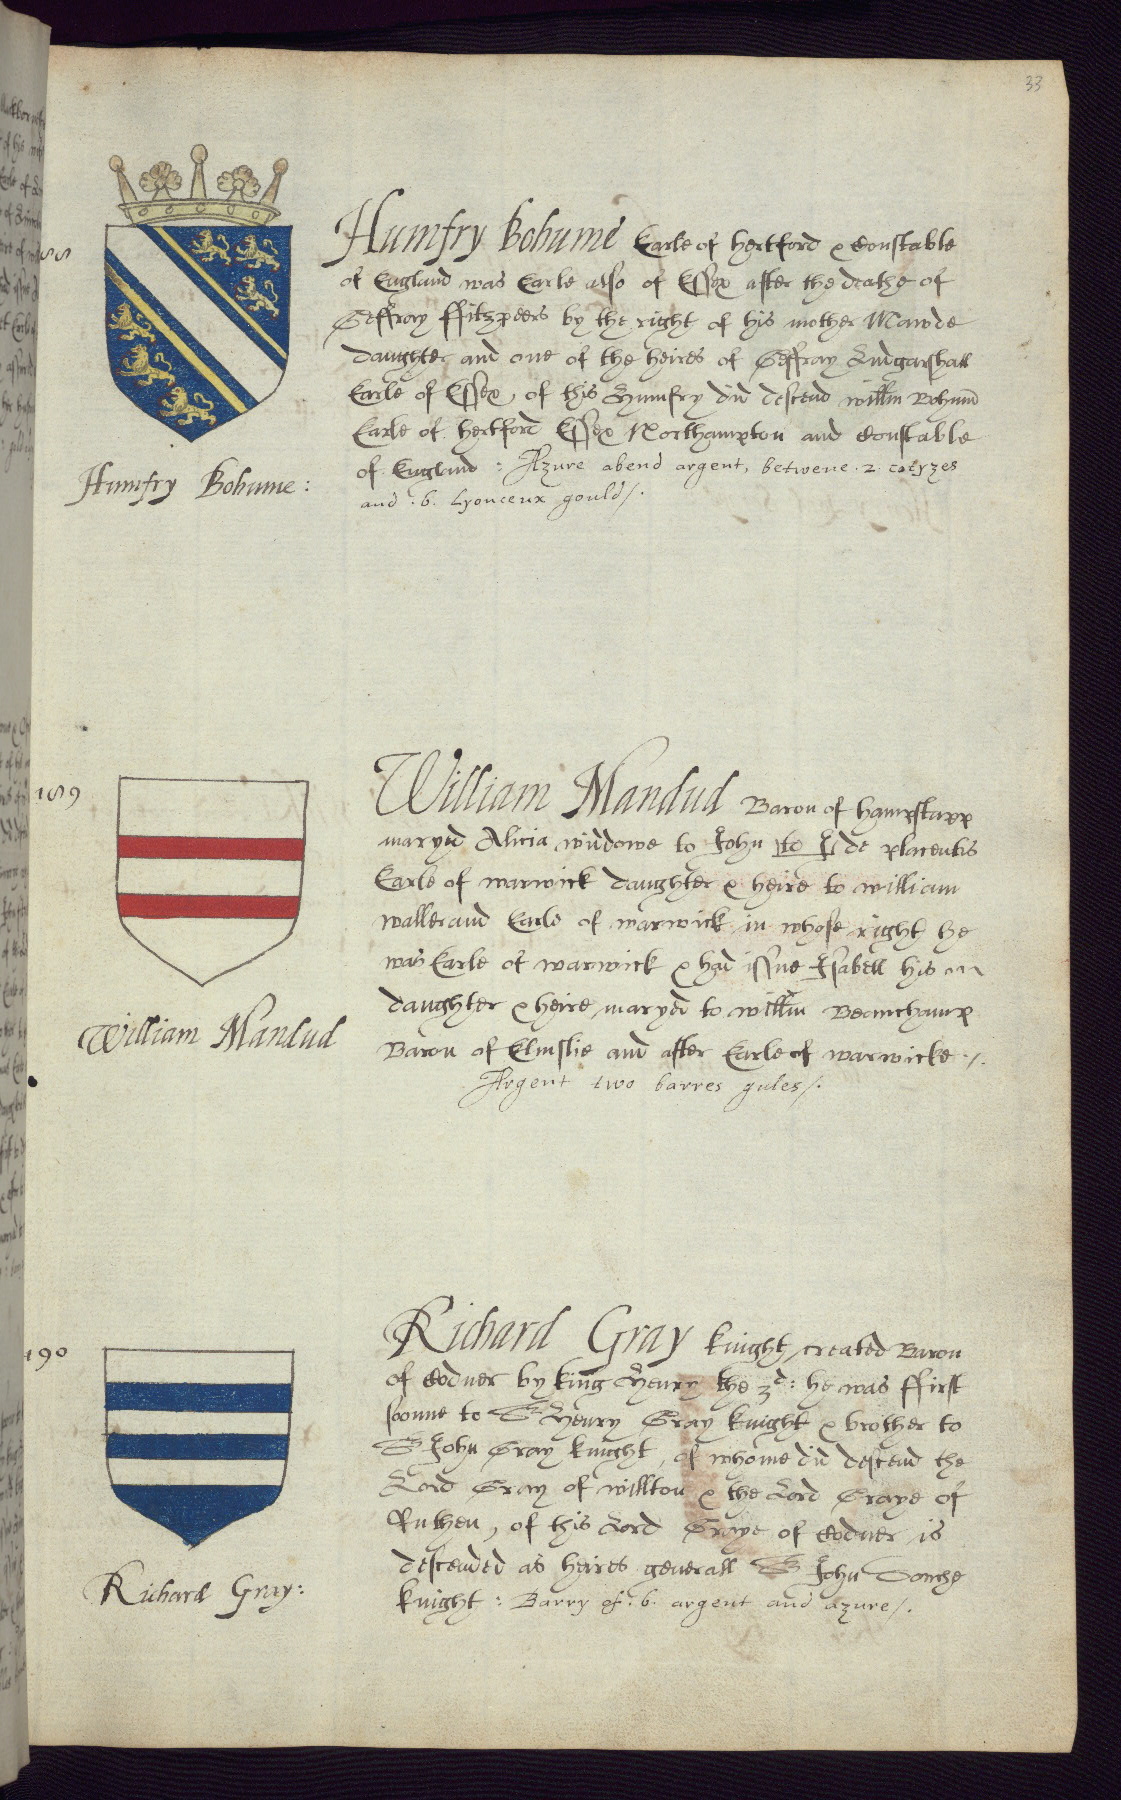 33
Humfry Bohume Earle of hertford & Constable
of England was Earle also of Essex after the deathe of
Geffray ffitzpeers by the right of his mother Mawde
daughter and one of the heires of Geffray Ludgarshall
Earle of Essex, of this Humfry did descend willm Bohume
Earle of hertford Essex Northampton and Constable
of England : Azure abend argent, betwene .2. cotyzes
and .6. Lyonceux gould/.
Humfry Bohume :
189
William Mandud Baron of hampslapp
maryed Alicia widdowe to John to de placentis
Earle of warwick daughter & heire to william
wallerand Earle of warwick in whose right he
was Earle of warwick & had issue Isabell his
daughter & heire maryed to willm Beauchamp
Baron of Elmslie and after Earle of warwicke ./.
Argent two barres gules/.
William Mandud
190
Richard Gray knight, created Baron
of Codner by king Henry the 3d: he was ffirst
soonne to Sr Henry Gray knight & brother to
Sr John Gray knight, of whome did descend the
Lord Gray of willton & the Lord Graye of
Ruthen, of this Lord Graye of Codner is
descended as heires generall Sr John Souche
knight : Barry of .6. argent and azure/.
Richard Gray: